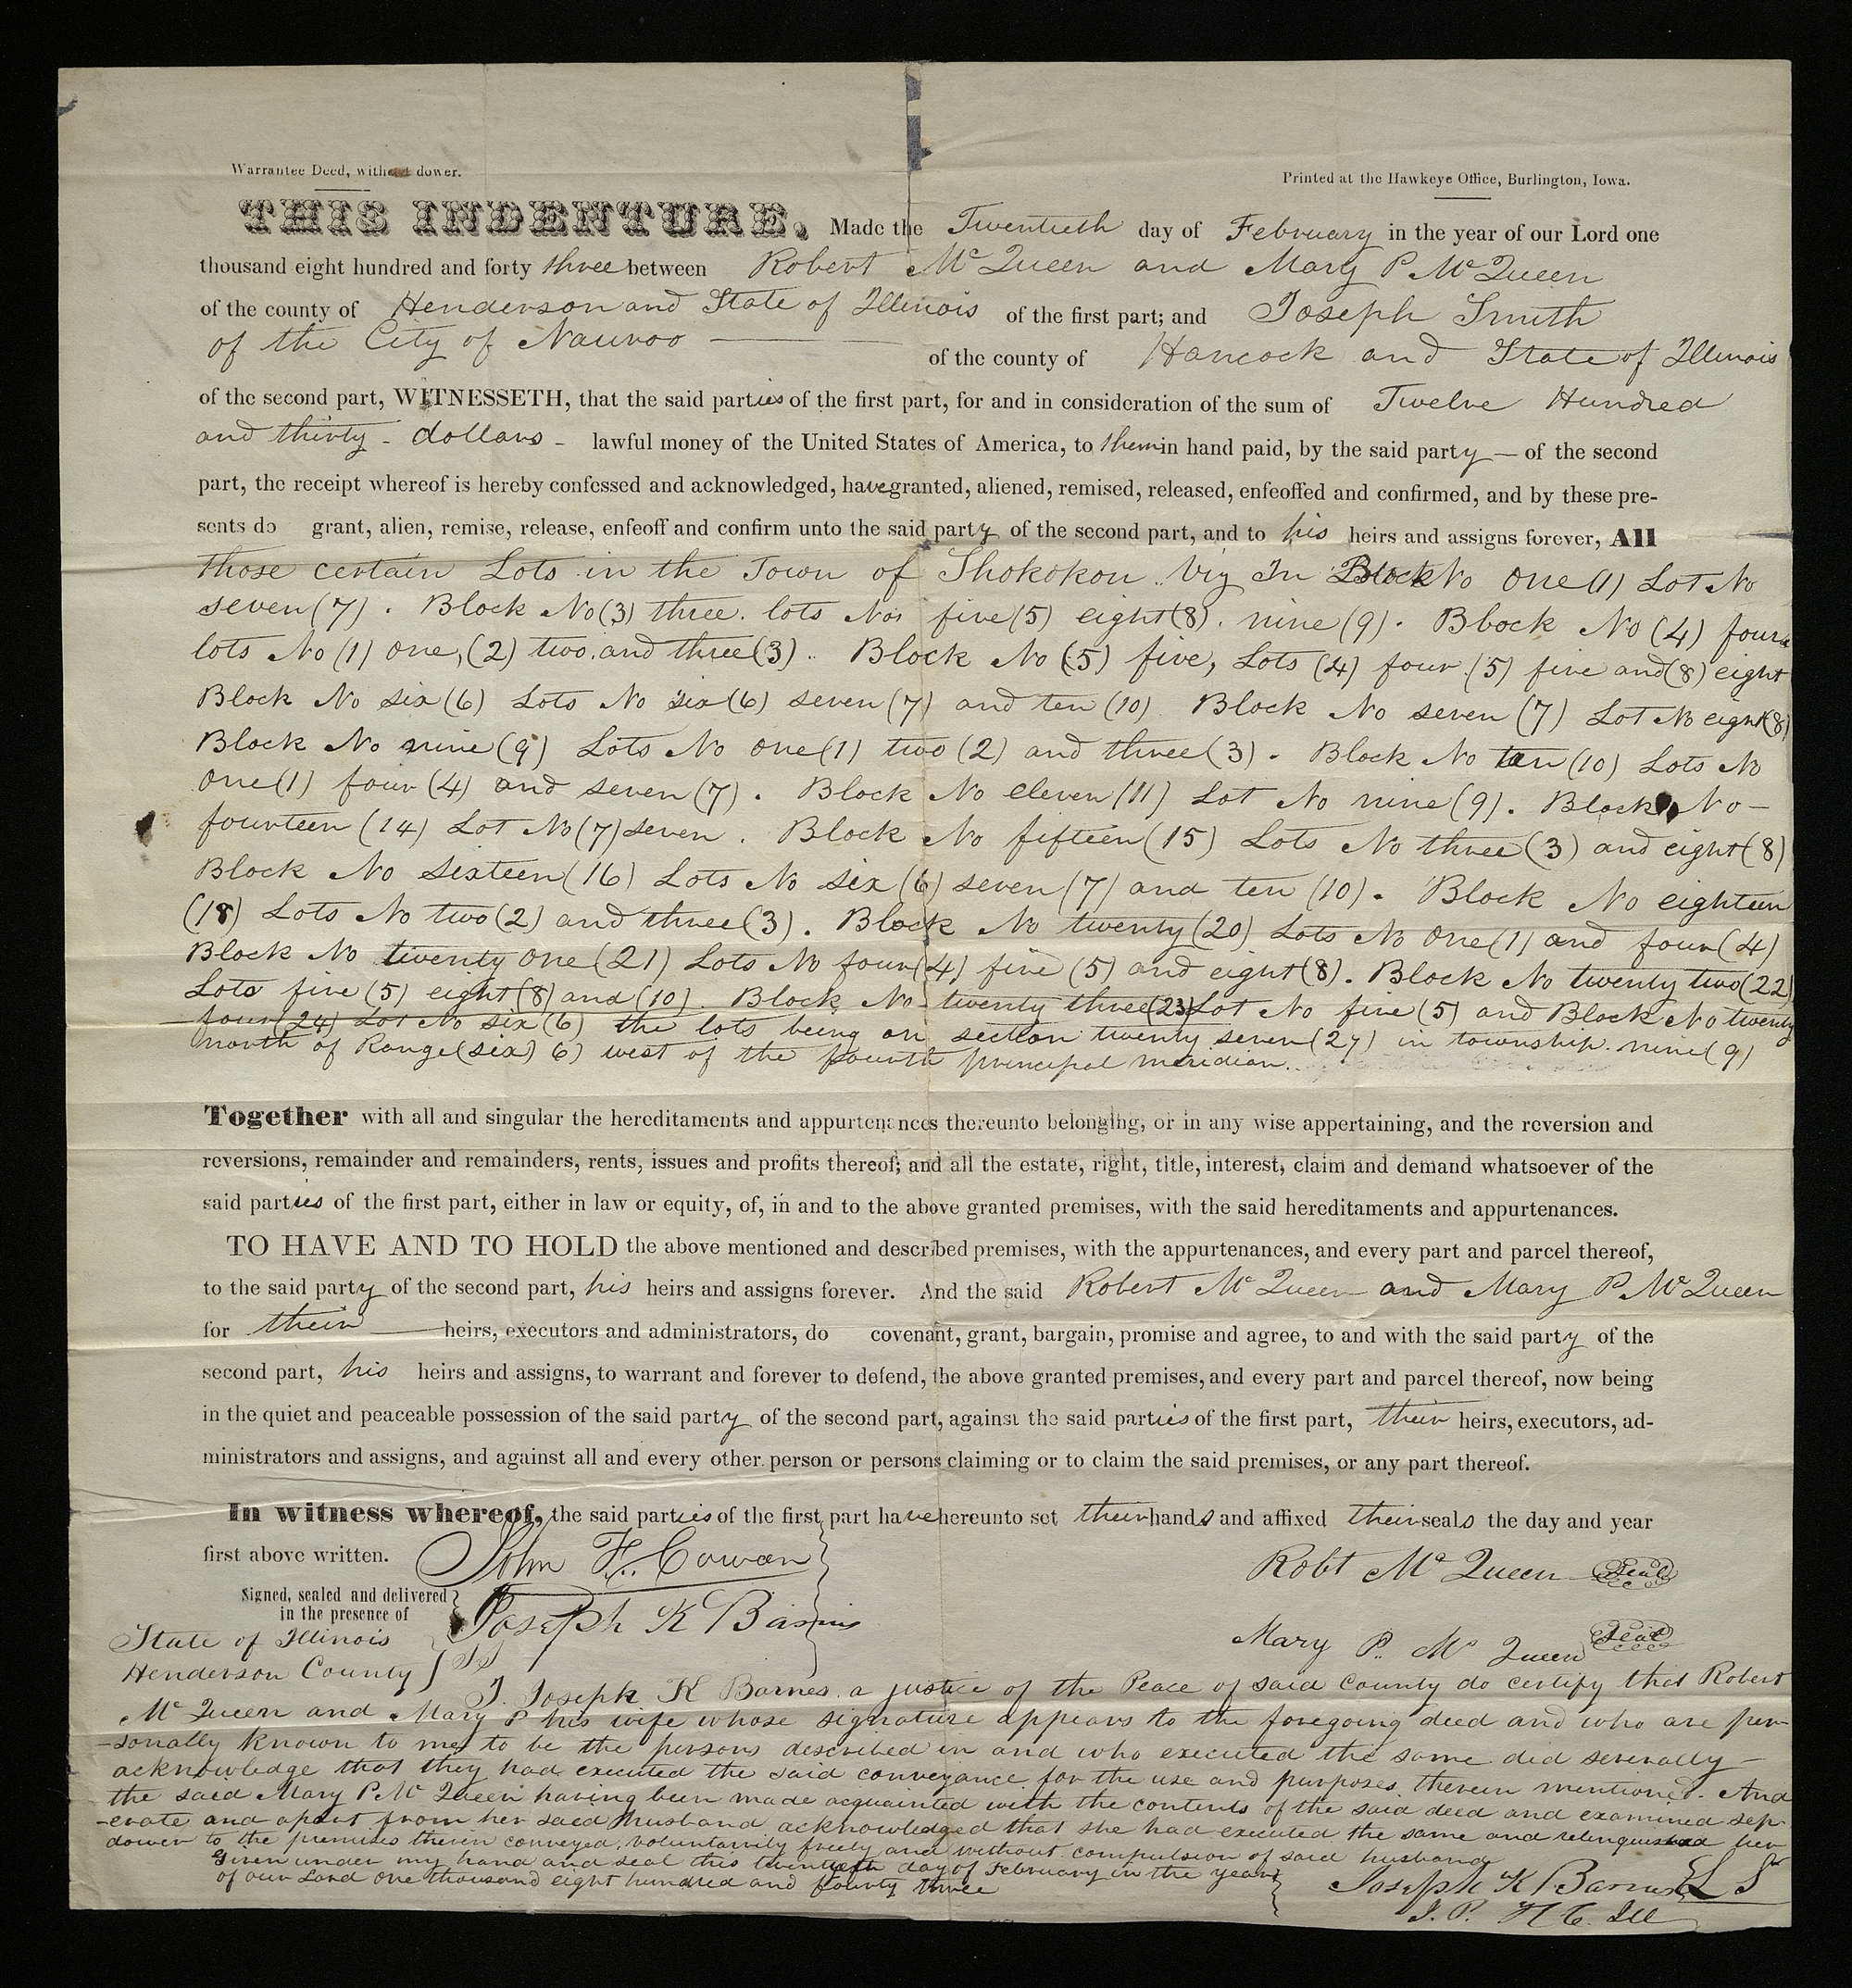 Warrantee Deed, without dower.
Printed at the Hawkeye Office, Burlington, Iowa.
THIS INDENTURE, Made the Twentieth day of February in the year of our Lord one
thousand eight hundred and forty three between Robert McQueen and Mary P McQueen
of the county of Henderson and State of Illinois of the first part; and Joseph Smith
of the City of Nauvoo — of the county of Hancock and State of Illinois
of the second part, WITNESSETH, that the said parties of the first part, for and in consideration of the sum of Twelve Hundred
and thirty - dollars - lawful money of the United States of America, to them in hand paid, by the said party — of the second
part, the receipt whereof is hereby confessed and acknowledged, have granted, aliened, remised, released, enfeoffed and confirmed, and by these pre-
sents do grant, alien, remise, release, enfeoff and confirm unto the said party of the second part, and to his heirs and assigns forever, All
those certain Lots in the Town of Shokokon. Viz In Block No One (1) Lot No
seven (7). Block No (3) three. lots Nos five (5) eight (8). nine (9). Block No (4) four
lots No (1) one, (2) two, and three (3). Block No (5) five, Lots (4) four (5) five and (8) eight
Block No six (6) Lots No six (6) seven (7) and ten (10) Block No seven (7) Lot No eight (8)
Block No nine (9) Lots No one (1) two (2) and three (3). Block No ten (10) Lots No
one (1) four (4) and seven (7). Block No eleven (11) Lot No nine (9). Block No -
fourteen (14) Lot No (7) seven. Block No fifteen (15) Lots No three (3) and eight (8)
Block No sixteen (16) Lots No six (6) seven (7) and ten (10). Block No eighteen
(18) Lots No two (2) and three (3). Block No twenty (20) Lots No One (1) and four (4)
Block No twenty one (21) Lots No four (4) five (5) and eight (8). Block No twenty two (22)
Lots five (5) eight (8) and (10). Block No twenty three (23) Lot No five (5) and Block No twenty
four (24) Lot No six (6) the lots being on section twenty seven (27) in township nine (9)
north of Range (six) 6) west of the fourth principal meridian.
Together with all and singular the hereditaments and appurtenances thereunto belonging, or in any wise appertaining, and the reversion and
reversions, remainder and remainders, rents, issues and profits thereof; and all the estate, right, title, interest, claim and demand whatsoever of the
said parties of the first part, either in law or equity, of, in and to the above granted premises, with the said hereditaments and appurtenances.
TO HAVE AND TO HOLD the above mentioned and described premises, with the appurtenances, and every part and parcel thereof,
to the said party of the second part, his heirs and assigns forever. And the said Robert McQueen and Mary P McQueen
for their — heirs, executors and administrators, do covenant, grant, bargain, promise and agree, to and with the said party of the
second part, his heirs and assigns, to warrant and forever to defend, the above granted premises, and every part and parcel thereof, now being
in the quiet and peaceable possession of the said party of the second part, against the said parties of the first part, their heirs, executors, ad-
ministrators and assigns, and against all and every other person or persons claiming or to claim the said premises, or any part thereof.
In witness whereof, the said parties of the first part have hereunto set their hands and affixed their seals the day and year
first above written. John F. Cowan
Robt McQueen Seal
Signed, sealed and delivered
in the presence of
Joseph K Barnes
Mary P. McQueen Seal
State of Illinois
Henderson County } SS
I. Joseph K Barnes a justice of the Peace of said County do certify that Robert
McQueen and Mary P his wife whose signature appears to the foregoing deed and who are per-
-sonally known to me to be the persons described in and who executed the same did severally -
acknowledge that they had executed the said conveyance for the use and purposes therein mentioned. And
the said Mary P. McQueen having been made acquainted with the contents of the said deed and examined sep-
-erate and apart from her said husband acknowledged that she had executed the same and relinquished her
dower to the premises therein conveyed, voluntarily freely and without compulsion of said husband
Given under my hand and seal this twentieth day of February in the year
of our Lord one thousand eight hundred and fourty three
Joseph K Barnes L S
J. P. H C. Ill